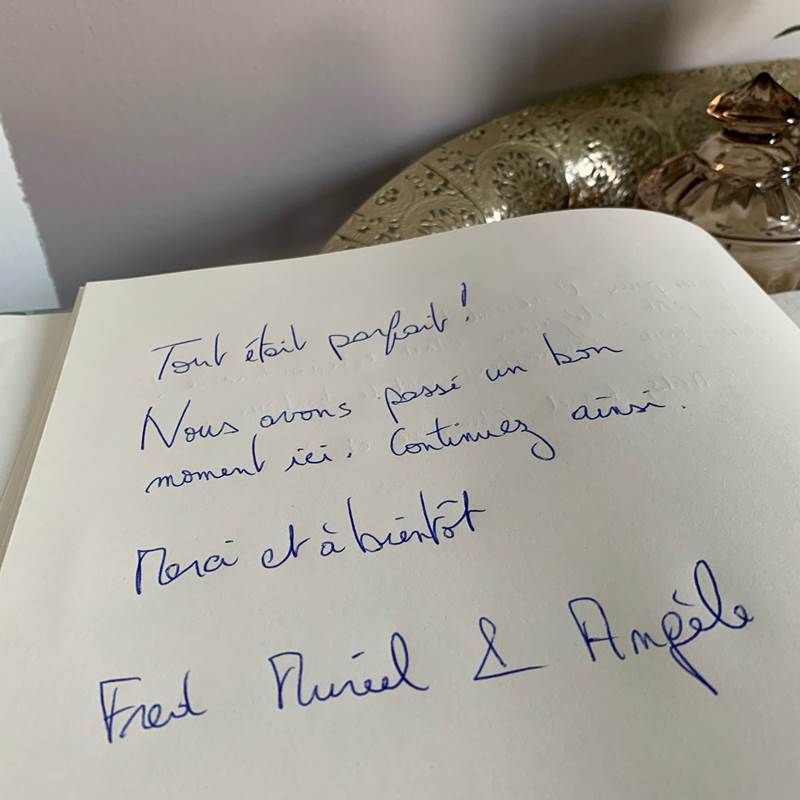 Tout était parfait !
Nous avons passé un bon
moment ici. Continuez ainsi.
Merci et à bientôt
Fred Muriel & Angèle